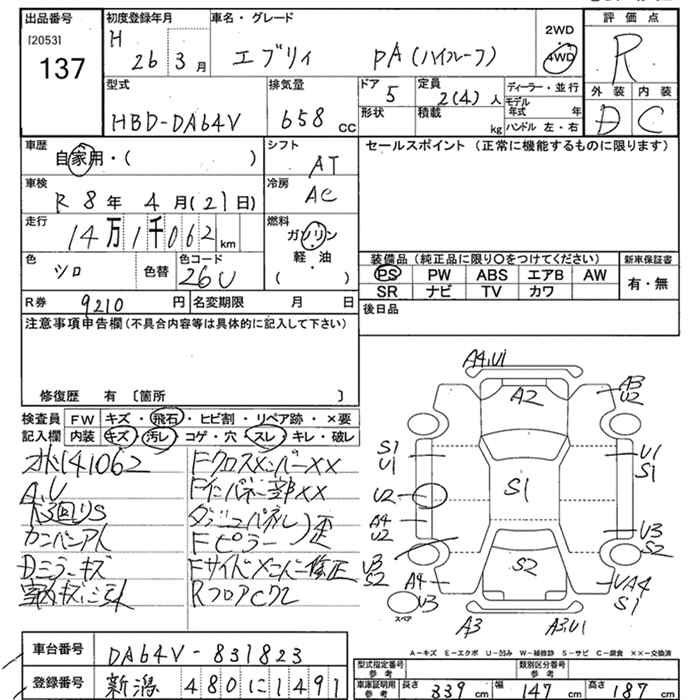 出品番号
[2053]
137
初度登録年月
H 26 3月
車名・グレード
エブリィ PA(ハイルーフ)
2WD
4WD
評価点
R
外装 内装
D C
型式
HBD-DA64V
排気量
658 cc
ドア
5
形状
定員
2(4)人
積載
kg
ディーラー・並行
モデル年式 年
ハンドル 左・右
車歴
自家用・( )
シフト
AT
セールスポイント (正常に機能するものに限ります)
車検
R 8年 4月(21日)
冷房
AC
走行
14万1千062km
燃料
ガソリン
軽・油
( )
色
シロ
色替
色コード
26U
装備品 (純正品に限り〇をつけてください)
新車保証書
PS PW ABS エアB AW
SR ナビ TV カワ
有・無
R券 9210円
名変期限 月 日
後日品
注意事項申告欄(不具合内容等は具体的に記入して下さい)
修復歴 有 〔箇所 〕
検査員記入欄
FW キズ・飛石・ヒビ割・リペア跡・×要
内装 キズ・汚レ・コゲ・穴・スレ・キレ・破レ
141062
A.U
下廻りS
カンバン
Dミラーキズ
FクロスメンバーXX
Fインパネ部XX
Fピラー 歪
Fサイドメンバー修正
RフロアC穴
A4,U1
A2
A3
U2
S1
U1
U1
S1
U2
S1
A4
U2
U3
S2
U3
S2
S2
A4
U3
UA4
S1
スペア
A3
A3,U1
A-キズ E-エクボ U-凹み W-補修跡 S-サビ C-腐食 ××-交換済
車台番号
DA64V-831823
登録番号
新潟 480に1491
型式指定番号
参考
類別区分番号
参考
車庫証明用
参考
長さ 339cm
幅 147cm
高さ 187cm